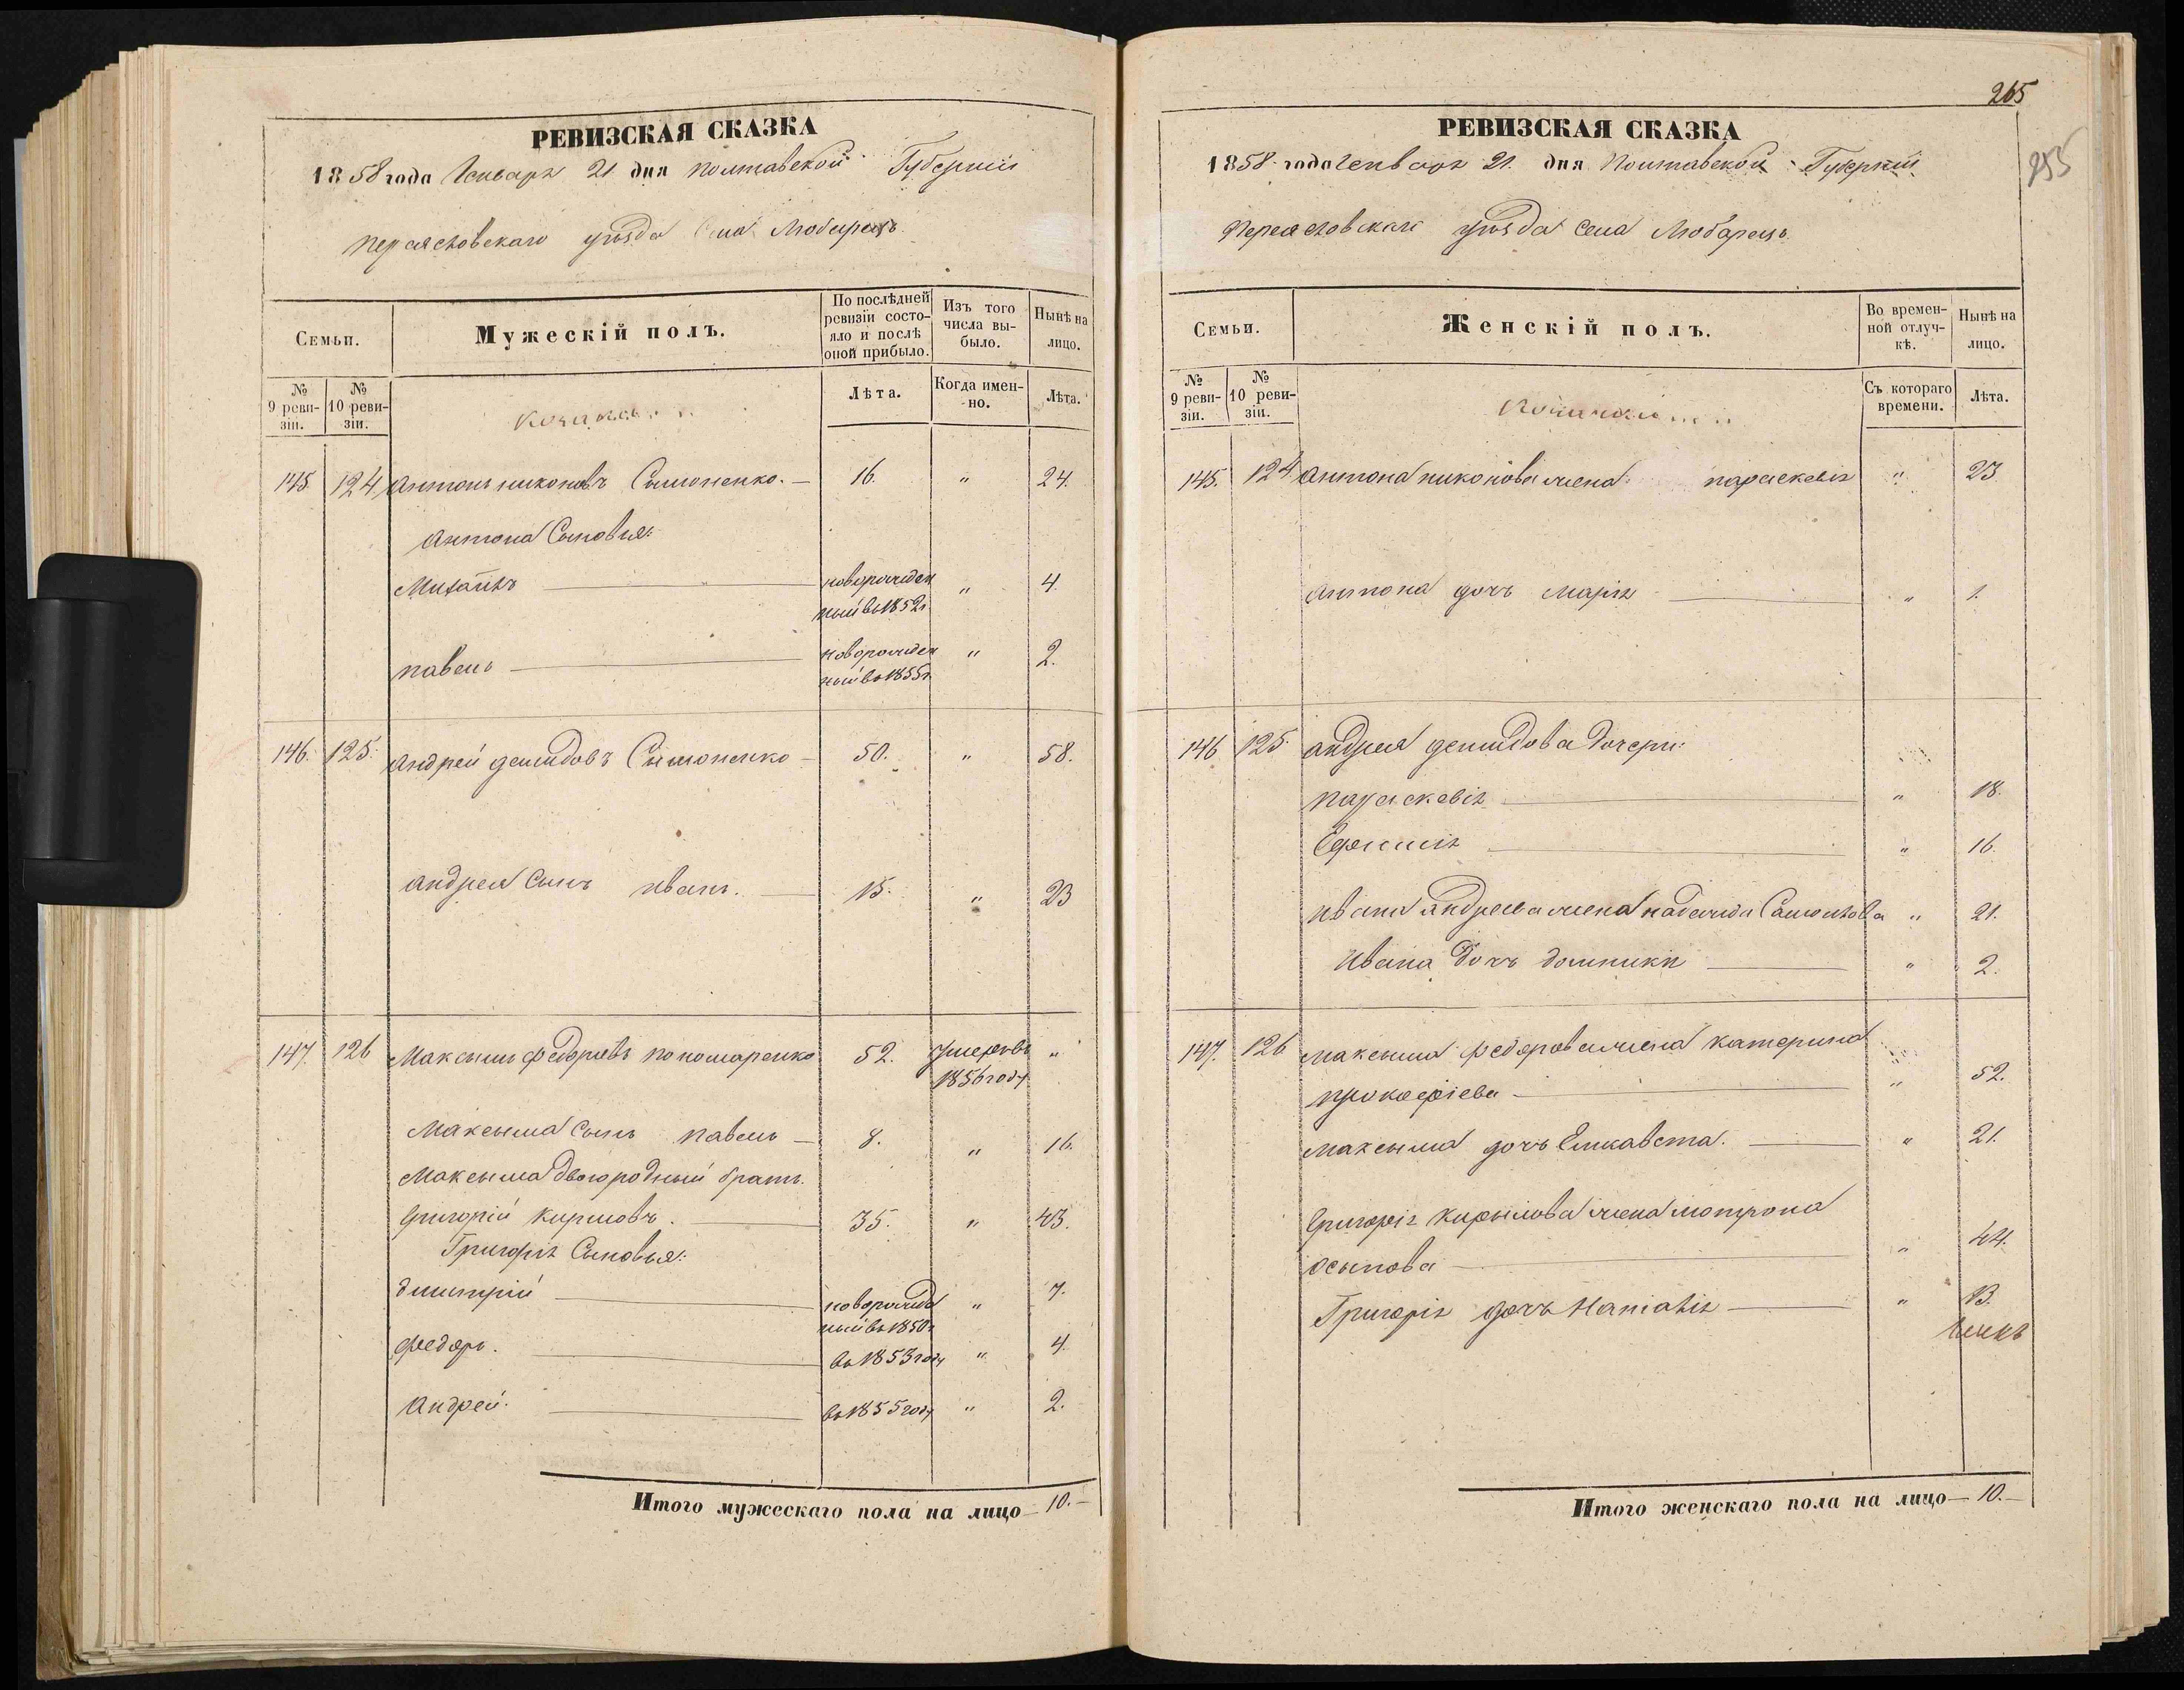 РЕВИЗСКАЯ СКАЗКА
1858 года Генваря 21 дня Полтавской Губерніи
Переясловскаго уѣзда Села Любарець
Семьи.
Мужескій полъ.
По послѣдней ревизіи состояло и послѣ оной прибыло.
Изъ того числа выбыло.
Нынѣ на лицо.
№ 9 ревизіи.
№ 10 ревизіи.
Лѣта.
Когда именно.
Лѣта.
145 124 Антонъ никоновъ Симоненко. — 16. " 24.
Антона Сыновья:
Михаилъ — новорожден " 4.
ный въ 1852г
павелъ — новорожден " 2.
ный въ 1855г
146. 125. Андрей демидовъ Симоненко — 50. " 58.
андрея Сынъ иванъ. — 15. " 23
147. 126 Максимъ Федоровъ пономаренко 52. Умеръ въ "
1856 году
Максыма Сынъ павелъ — 8. " 16.
Максыма двоюродный братъ.
Григорій Кириловъ. — 35. " 43.
Григорія Сыновья:
дмитрій — новорожде " 7.
ный въ 1850г
Федоръ. — въ 1853 году " 4.
Андрей. — въ 1855 году " 2.
Итого мужескаго пола на лицо — 10. —
265
255
РЕВИЗСКАЯ СКАЗКА
1858 года Генваря 21. дня Полтавской Губерніи
Переясловскаго уѣзда Села Любарець
Семьи.
Женскій полъ.
Во временной отлучкѣ.
Нынѣ на лицо.
№ 9 ревизіи.
№ 10 ревизіи.
Съ котораго времени.
Лѣта.
145. 124 Антона никонова жена параскевія " 23
Антона дочь марія — " 1.
146 125. андрея демидова дочери:
параскевія — " 18.
— " 16.
ивана андреева жена надежда Самойлова " 21.
Ивана дочь домникія — " 2.
147. 126 максыма федорова жена катерина
прокофіева — " 52.
максыма дочь Елисавета. — " 21.
Григорія Кирылова жена мотрона
осыпова — " 44.
Григорія дочь Наталія — " 13.
Итого женскаго пола на лицо — 10. —